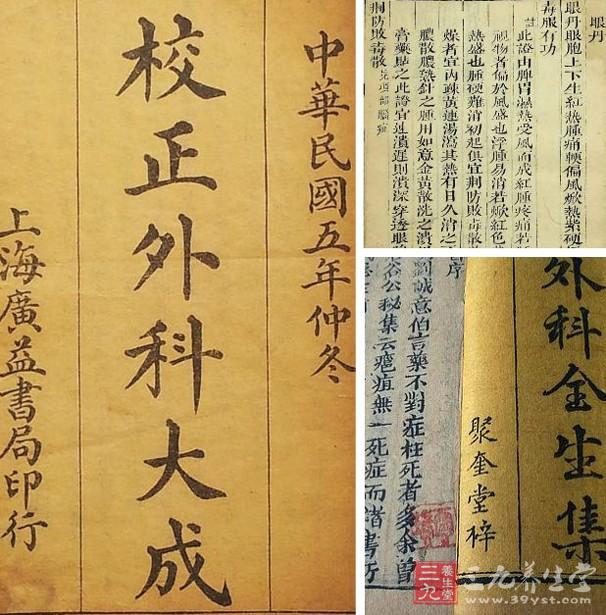 中華民國五年仲冬
校正外科大成
上海廣益書局印行
眼丹
眼丹眼胞上下生紅熱腫痛輭偏風嫩熱紫硬
毒服有功
此證由脾胃濕熱受風而成紅腫疼痛若
視物者偏於風盛也浮腫易消若嫩紅色
熱盛也腫硬難消初起俱宜荊防敗毒散
燥者宜內疎黃連湯瀉其熱有日久消之
膿散膿熟針之腫用如意金黃散洗之潰
膏藥貼之此證宜速潰遲則潰深穿透眼
荊防敗毒散 見項部腦疽
外科全生集
聚奎堂梓
書序
劉誠意伯言藥不對症枉死者多余曾
公秘集云癰疽無一死症而諸書
三九
養生堂
三九养生堂
www.39yst.com